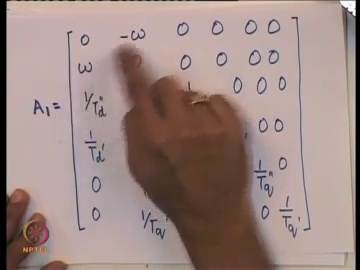 0 -ω 0 0 0 0
ω 0 0 0 0
1/Td" 0 0 0
A1 =
1/Td' 0 0
0 1/Tq" 0
0 1/Tq' 0 1/Tq'
NPTEL